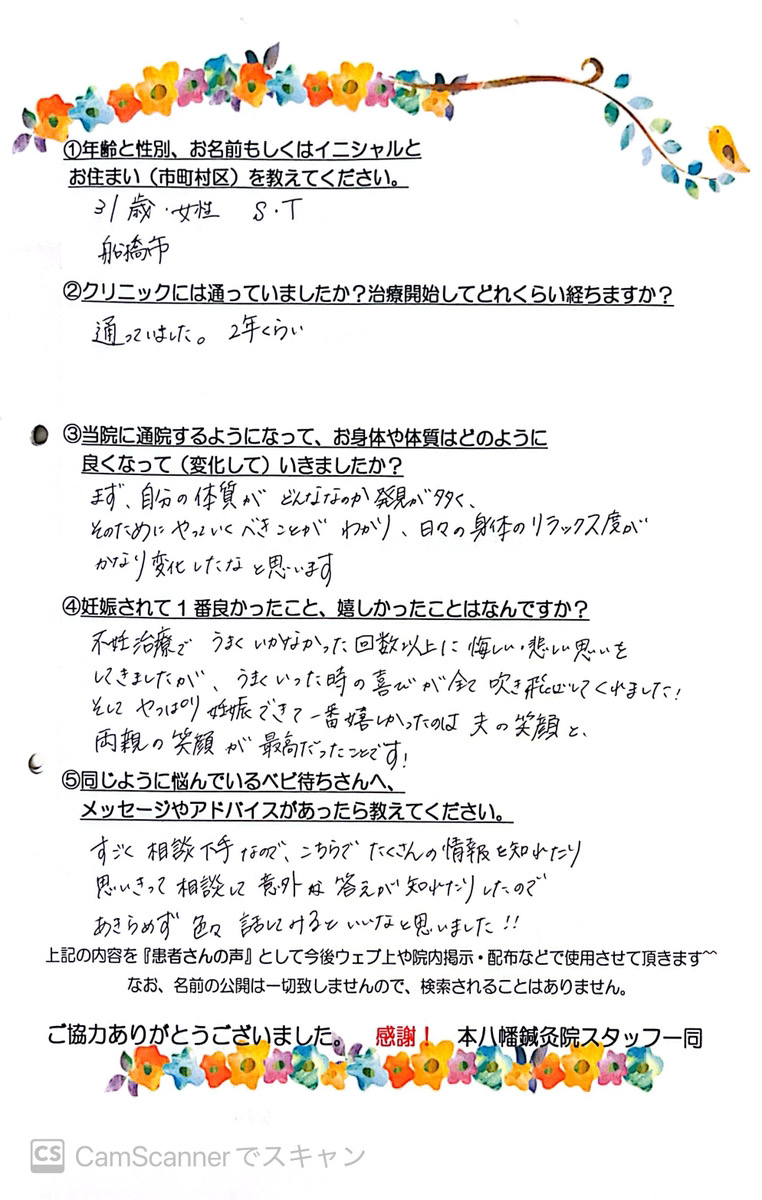 ①年齢と性別、お名前もしくはイニシャルと
お住まい（市町村区）を教えてください。
31歳・女性 S・T
船橋市
②クリニックには通っていましたか？治療開始してどれくらい経ちますか？
通っていました。 2年くらい
③当院に通院するようになって、お身体や体質はどのように
良くなって（変化して）いきましたか？
まず、自分の体質がどんななのか発見が多く、
そのためにやっていくべきことがわかり、日々の身体のリラックス度が
かなり変化したなと思います
④妊娠されて１番良かったこと、嬉しかったことはなんですか？
不妊治療でうまくいかなかった回数以上に悔しい・悲しい思いを
してきましたが、うまくいった時の喜びが全て吹き飛ばしてくれました！
そしてやっぱり妊娠できて一番嬉しかったのは夫の笑顔と、
両親の笑顔が最高だったことです！
⑤同じように悩んでいるベビ待ちさんへ、
メッセージやアドバイスがあったら教えてください。
すごく相談下手なので、こちらでたくさんの情報を知れたり
思いきって相談して意外な答えが知れたりしたので
あきらめず色々話してみるといいなと思いました!!
上記の内容を『患者さんの声』として今後ウェブ上や院内掲示・配布などで使用させて頂きます^^
なお、名前の公開は一切致しませんので、検索されることはありません。
ご協力ありがとうございました。 感謝！ 本八幡鍼灸院スタッフ一同
CS CamScannerでスキャン